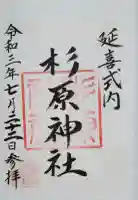 延喜式内
杉原神社
令和三年七月二十二日参拝